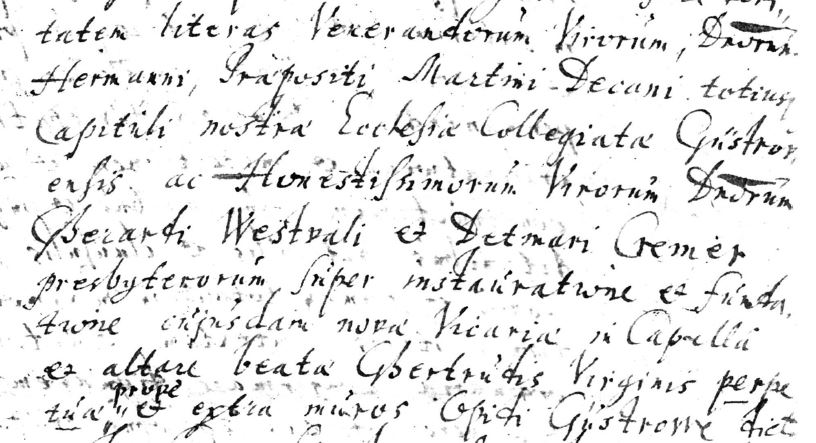 tatem literas Venerandorum Virorum, Dnorum
Hermanni, Præpositi Martini Decani totiusq
Capituli nostræ Ecclesiæ Collegiatæ Güstrov
ensis ac Honestissimorum Virorum Dnorum
Gherardi Westvali et Detmari Cremer
presbyterorum super instauratione et funda
tione cujusdam novæ Vicariæ in Capella
et altare beatæ Ghertrudis Virginis perpe
prope
tuæ et extra muros Opidi Güstrowe dict